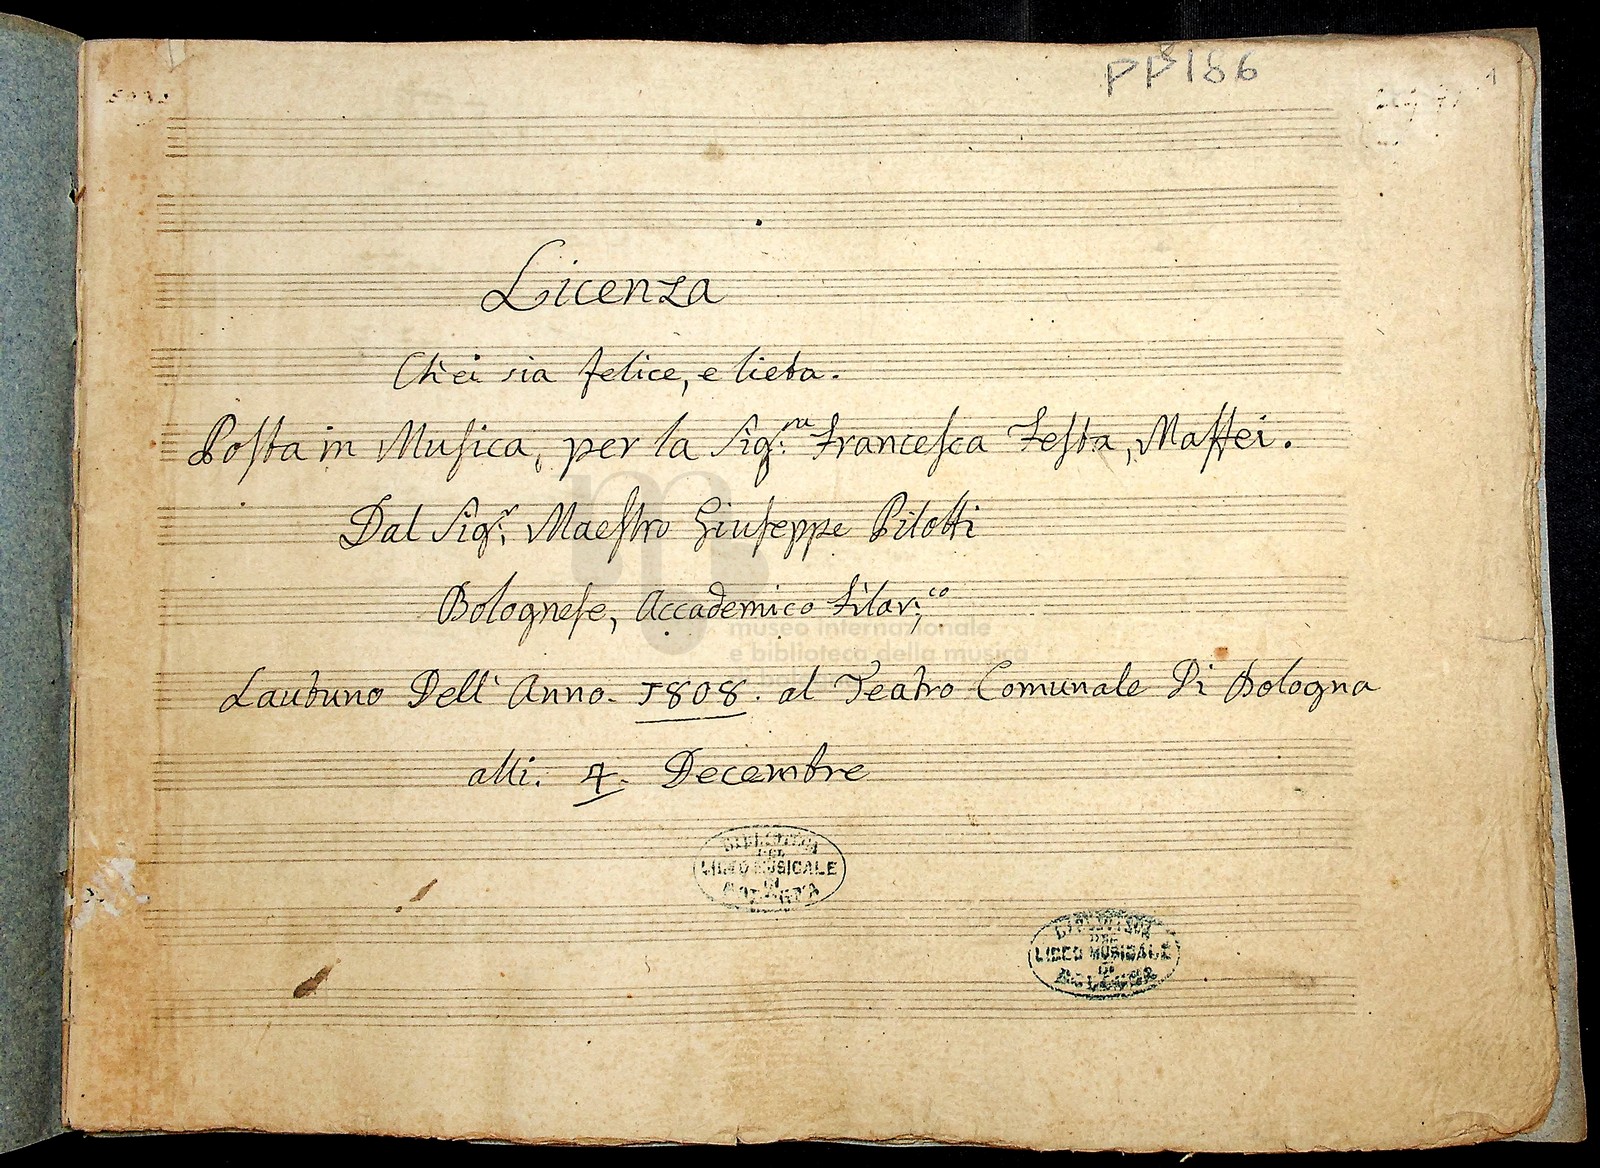 PP 186
1
Licenza
Ch'ei sia felice, e lieta.
Posta in Musica, per la Sig:ra Francesca Festa, Maffei.
Dal Sig:r Maestro Giuseppe Pilotti
Bolognese, Accademico Filar:co
museo internazionale
e biblioteca della musica
Lautuno Dell' Anno. 1808. al Teatro Comunale Di Bologna
alli. 4. Decembre
BIBLIOTECA
DEL
LICEO MUSICALE
DI
BOLOGNA
BIBLIOTECA
DEL
LICEO MUSICALE
DI
BOLOGNA